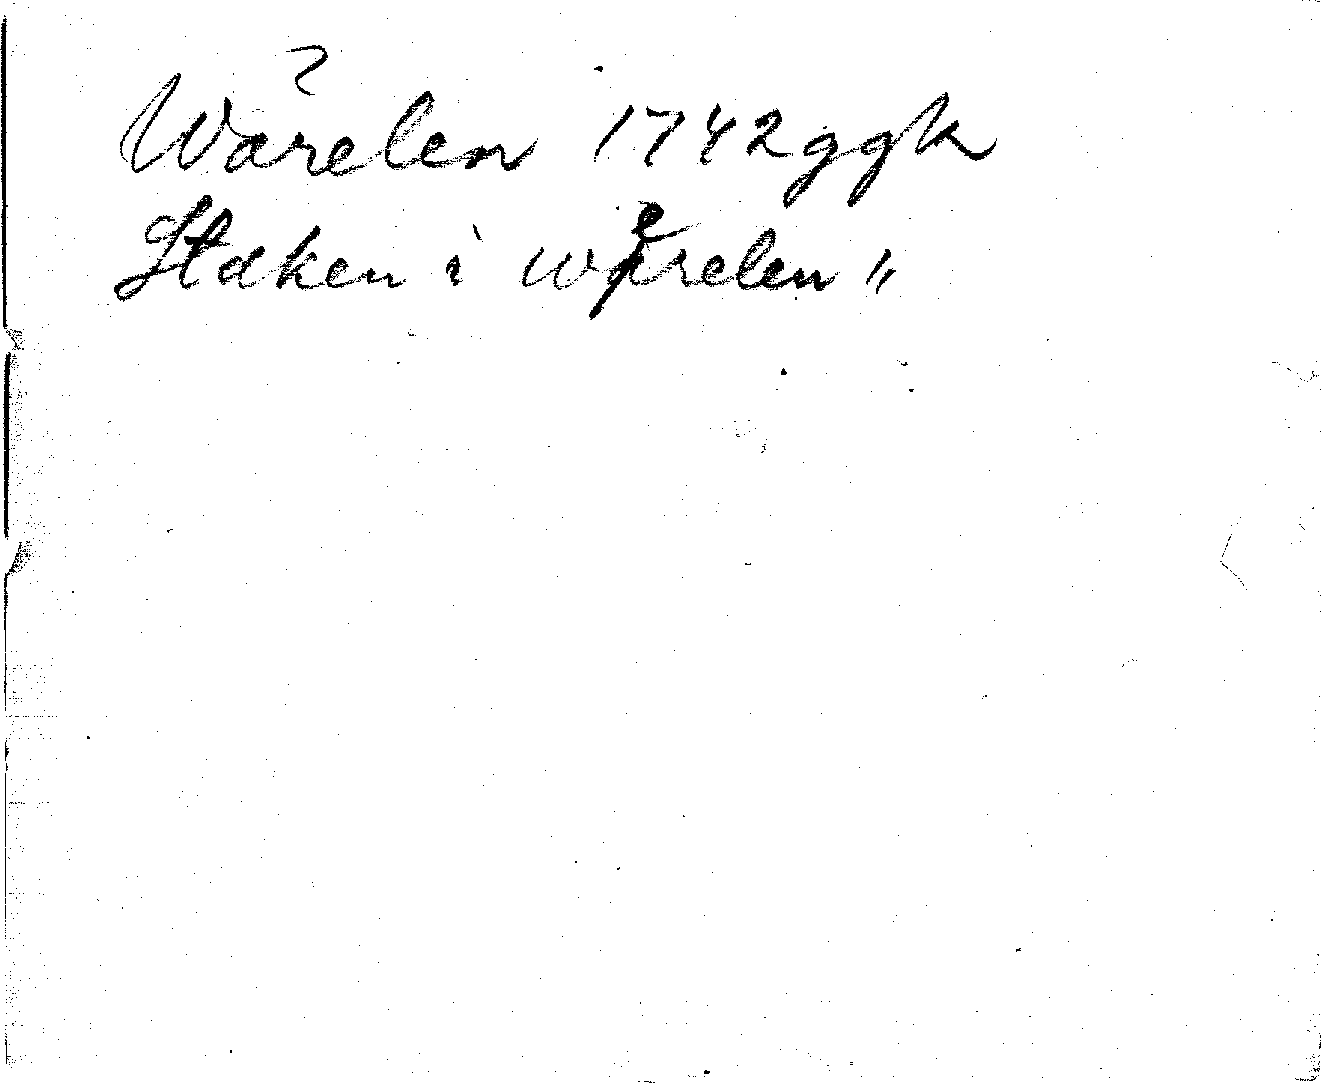 Wårelen 1742 ggk
Staken i wårelen "